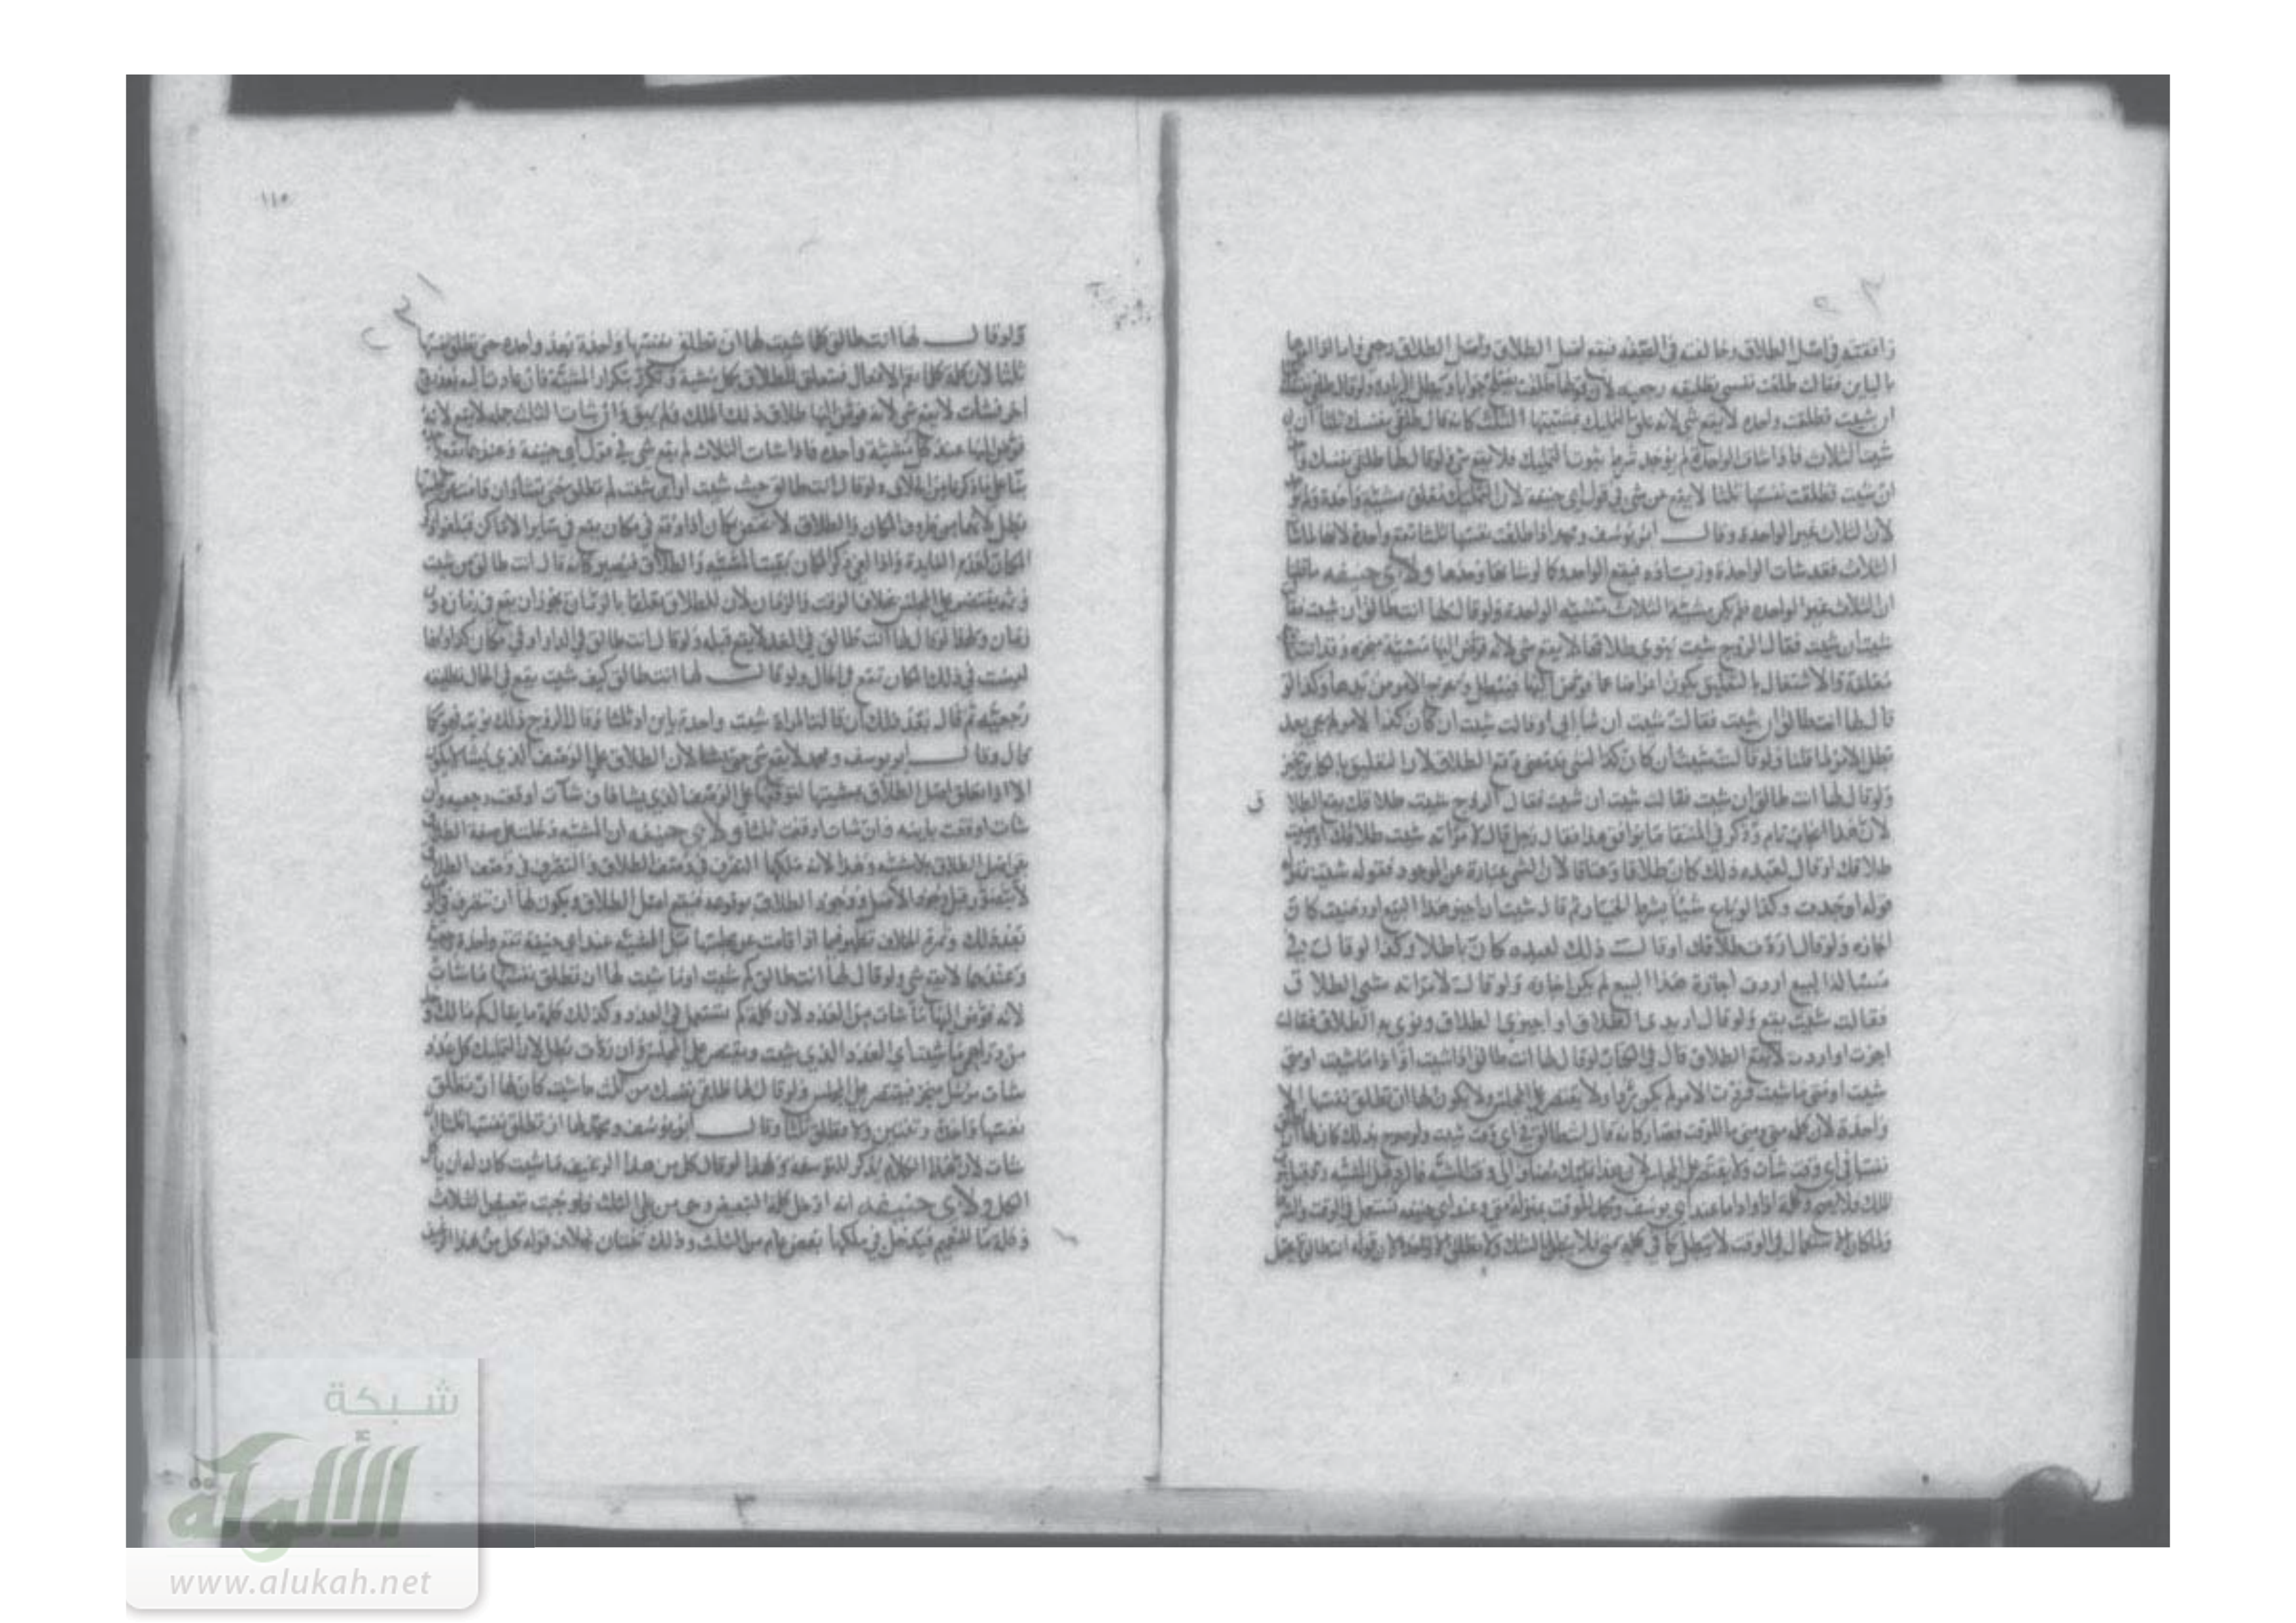 وافقته في اصل الطلاق وخالفته في الصفه فيقع اصل الطلاق واصل الطلاق رجعي فاما اذا امرها
بالباين فقالت طلقت نفسي تطليقه رجعيه لان قولها طلقت يصلح جوابا ويبطل الزياده ولو قال طلقي نفسك ثلثا
ان شيت فطلقت واحده لا يقع شي لانه علق التمليك بمشيتها الثلث كانه قال طلقي نفسك ثلثا ان
شيت الثلاث فاذا شات الواحدة لم يوجد شرط ثبوت التمليك فلا يقع شي ولو قال لها طلقي نفسك واحدة
ان شيت فطلقت نفسها ثلثا لا يقع شي في قول ابي حنيفة لان التمليك تعلق بمشيه واحدة ولم
لان الثلاث غير الواحدة وقال ابو يوسف ومحمد اذا طلقت نفسها ثلثا تقع واحدة لانها لما شات
الثلاث فقد شات الواحدة وزيادة فيقع الواحده كما لو شاتها وحدها ولابي حنيفه
ان الثلاث غير الواحده فلم يكن مشية الثلاث مشيئه الواحدة ولو قال لها انت طالق ان شيت فقالت
شيت ان شيت فقال الزوج شيت ينوي طلاقها لا يقع شي لانه فوض اليها مشيئه منجزه وقد اتت
معلقة والاشتغال بالتعليق يكون اعراضا عما فوض اليها فيبطل ويخرج الامر من يدها وكذا لو
قال لها انت طالق ان شيت فقالت شيت ان شا ابي او قالت شيت ان كان كذا لامر لم يجي بعد
بطل الامر لما قلنا ولو قالت شيت ان كان كذا لشي قد مضى وقع الطلاق لان التعليق بالكاين تنجيز
ولو قال لها انت طالق ان شيت فقالت شيت ان شيت فقال الزوج شيت طلاقك يقع الطلاق
لان هذا ايجاب تام وذكر في المنتقا ما يوافق هذا فقال رجل قال لامراته شيت طلاقك او شيت
طلاقك او قال لعبده ذلك كان طلاقا وعتاقا لان الشي عبارة عن الموجود فقوله شيت بمنزلة
قوله اوجدت وكذا لو باع شيئا بشرط الخيار ثم قال شيت ان اجيز هذا البيع او رضيت كان
اجازه ولو قال اردت طلاقك او قال ذلك لعبده كان باطلا وكذا لو قال في
مسئالة البيع اردت اجازة هذا البيع لم يكن اجازه ولو قال لامراته شيي الطلاق
فقالت شيت يقع ولو قال اريدي الطلاق او اجيزي الطلاق ونوى به الطلاق فقالت
اجزت او اردت لا يقع الطلاق قال في الكتاب لو قال لها انت طالق اذا شيت او اذا ما شيت او متى
شيت او متى ما شيت فردت الامر لم يكن ردا ولا يقتصر على المجلس ولا يكون لها ان تطلق نفسها الا
واحدة لان كلمه متى ومتى ما للوقت فصار كانه قال انت طالق في اي وقت شيت ولو صرح بذلك كان لها ان
نفسها في اي وقت شات ولا يقتصر على المجلس لان هذا تمليك مضاف الى وقت المشيه فالرد قبل المشيه
وكلمة اذا واذا ما عند ابي يوسف ومحمد للوقت بمنزلة متى وعند ابي حنيفه تستعمل في الوقت والشرط
الاستعمال في الوقت لا يبطل كما في كلمه متى فلا يبطل بالشك ولا تطلق الا واحدة لان قوله انت طالق
ولو قال لها انت طالق كلما شيت لها ان تطلق نفسها واحدة بعد واحده حتى تطلق نفسها
ثلثا لان كلمة كلما تعم الافعال فيتعلق الطلاق بكل مشية ويتكرر بتكرار المشيئة فان عادت اليه بعد زوج
اخر فشات لا يقع شي لانه فوض اليها طلاق ذلك الملك ولم يبق وان شات الثلث جمله لا يقع لانه
فوض اليها عند كل مشية واحده فاذا شات الثلاث لم يقع شي في قول ابي حنيفة وعندهما تقع
بنا على ما ذكرنا من الخلاف ولو قال انت طالق حيث شيت او اين شيت لم تطلق حتى تشا وان قامت من مجلسها
بطل لانهما من ظروف المكان والطلاق لا يختص بمكان اذا وقع في مكان يقع في سائر الاماكن فيلغو ذكر
المكان لعدم الفايدة واذا لغي ذكر المكان بقيت المشيه والطلاق فيصير كانه قال انت طالق ان شيت
وثمه يقتصر على المجلس بخلاف الوقت والزمان لان للطلاق تعلقا بالزمان يجوز ان يقع في زمان دون
زمان ولهذا لو قال لها انت طالق في الغد لا يقع قبله ولو قال انت طالق في الدار او في مكان كذا ولها
ليست في ذلك المكان تقع في الحال ولو قال لها انت طالق كيف شيت يقع في الحال تطليقه
رجعيه ثم قال بعد ذلك ان قالت المراة شيت واحدة باين او ثلثا وقال الزوج ذلك نويت فهو كما
قال وقال ابو يوسف ومحمد لا يقع شي حتى تشا لان الطلاق على الوصف الذي يشا لا يكون
الا اذا علق اصل الطلاق بمشيتها لتوقعها على الوصف الذي يشا فان شات اوقعت رجعيه وان
شات اوقعت باينه وان شات اوقعت ثلثا ولابي حنيفه ان المشيه دخلت على صفة الطلاق
اصل الطلاق بلا مشيه وهذا لانه ملكها التصرف في وصف الطلاق والتصرف في وصف الطلاق
لا يتصور قبل وجود الاصل ووجود الطلاق بوقوعه فيقع اصل الطلاق ويكون لها ان تتصرف
بعد ذلك وثمرة الخلاف تظهر فيما اذا قامت عن مجلسها قبل المشيه عند ابي حنيفة تقع واحدة رجعية
وعندهما لا يقع شي ولو قال لها انت طالق كم شيت او ما شيت لها ان تطلق نفسها ما شات
لانه فوض اليها ما شات من العدد لان كلمة كم تستعمل في العدد وكذلك كلمة ما يقال كم مالك
شيت اي العدد الذي شيت ويقتصر على المجلس وان ردت بطل لان التمليك
شات مرسل منجز فيقتصر على المجلس ولو قال لها طلقي نفسك من ثلث ما شيت كان لها ان تطلق
نفسها واحدة وثنتين ولا تطلق ثلثا وقال ابو يوسف ومحمد لها ان تطلق نفسها ثلثا ان
شات لان هذا الكلام يذكر للتوسعه ولهذا لو قال كل من هذا الرغيف ما شيت كان له ان ياكل
الكل ولابي حنيفه انه ادخل كلمة التبعيض وهي من على الثلث فاوجبت تبعيض الثلاث
وكلمة ما للتعميم فيدخل في ملكها بعض عام من الثلث وذلك ثنتان بخلاف قوله كل من هذا الرغيف
١١٥
شبكة
الألوكة
www.alukah.net